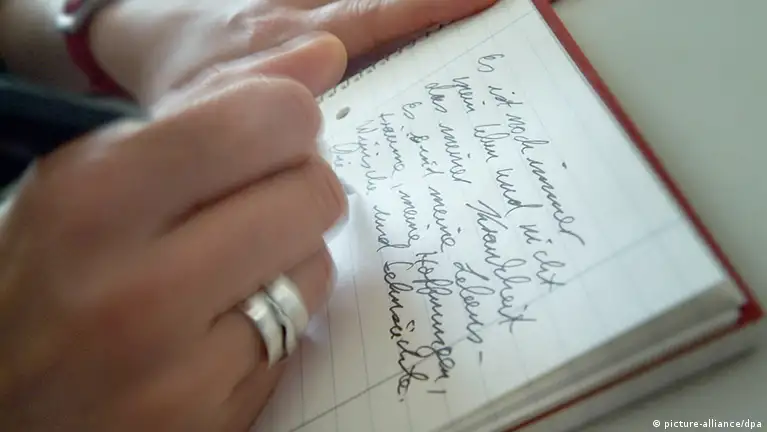 es ist noch immer
mein Leben und nicht
das meiner Krankheit
Es sind meine Lebens-
träume, meine Hoffnungen,
Wünsche und Sehnsüchte.
Die
© picture-alliance/dpa